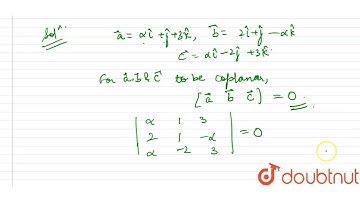 Solⁿ.
a⃗ = αî + ĵ + 3k̂, b⃗ = 2î + ĵ − αk̂
c⃗ = αî − 2ĵ + 3k̂
For a⃗, b⃗ & c⃗ to be coplanar,
[a⃗ b⃗ c⃗] = 0.
| α 1 3 |
| 2 1 −α | = 0
| α −2 3 |
doubtnut